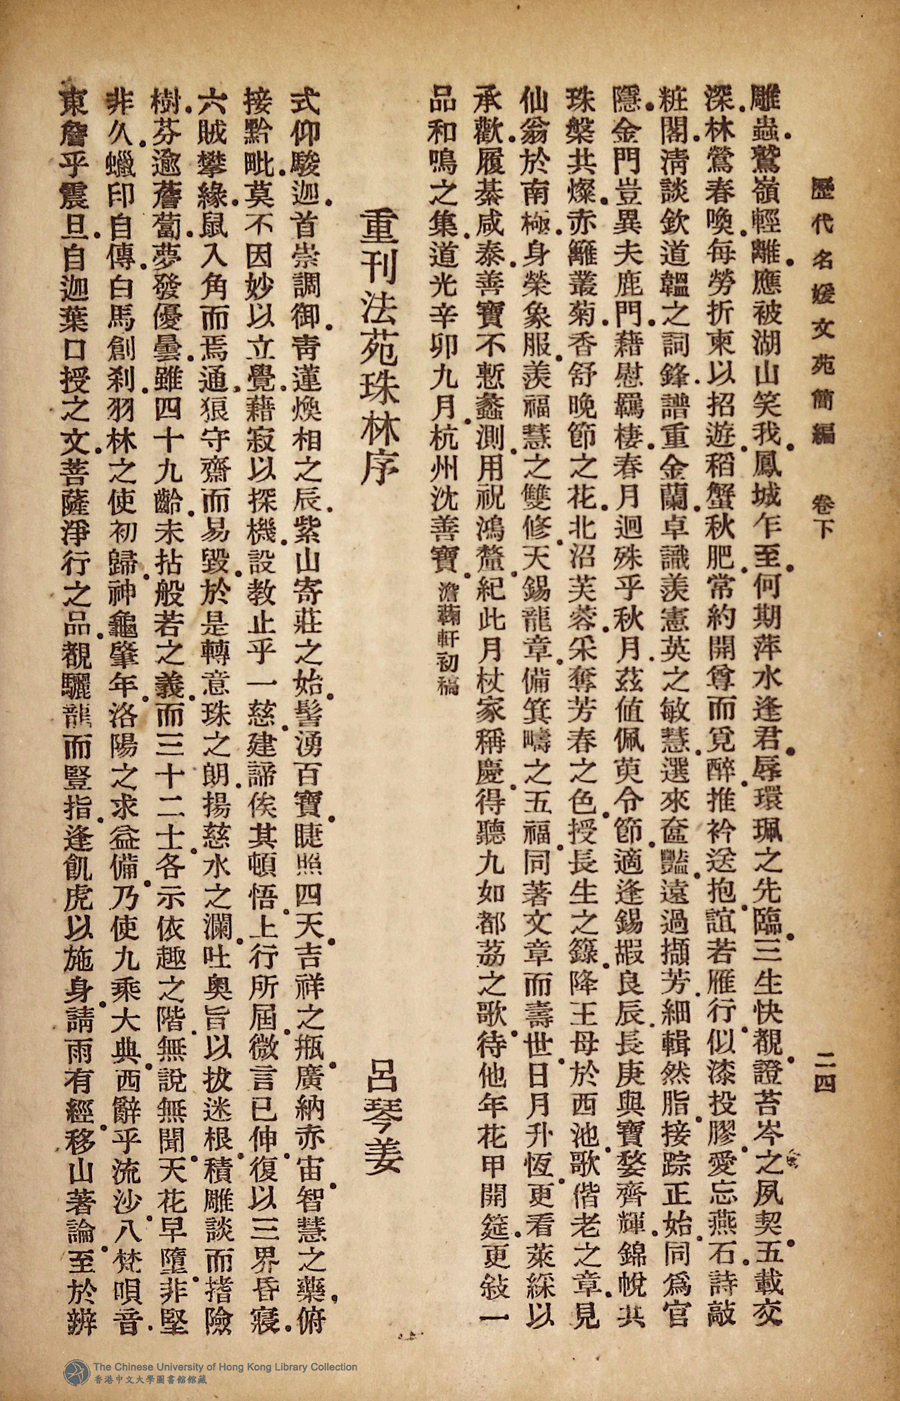 歷代名媛文苑簡編　卷下　二四
雕蟲.鷲嶺輕離.應被湖山笑我.鳳城乍至.何期萍水逢君.辱環珮之先臨.三生快覩.證苔岑之夙契.五載交
深.林鶯春喚.每勞折柬以招遊.稻蟹秋肥.常約開尊而覓醉.推衿送抱.誼若雁行.似漆投膠.愛忘燕石.詩敲
粧閣.清談欽道韞之詞鋒.譜重金蘭.卓識羨憲英之敏慧.選來奩豔.遠過擷芳.細輯然脂.接踪正始.同爲官
隱.金門豈異夫鹿門.藉慰羈棲.春月迥殊乎秋月.茲値佩萸令節.適逢錫嘏良辰.長庚與寶婺齊輝.錦帨共
珠槃共燦.赤籬叢菊.香舒晚節之花.北沼芙蓉.采奪芳春之色.授長生之籙.降王母於西池.歌偕老之章.見
仙翁於南極.身榮象服.羨福慧之雙修.天錫龍章.備箕疇之五福.同著文章而壽世.日月升恆.更看萊綵以
承歡.履綦咸泰.善寶不慙蠡測.用祝鴻釐.紀此月杖家稱慶.得聽九如都荔之歌.待他年花甲開筵.更敍一
品和鳴之集.道光辛卯九月.杭州沈善寶.澹蘜軒初稿
重刊法苑珠林序　呂琴姜
式仰駿迦.首崇調御.靑蓮煥相之辰.紫山寄莊之始.髻湧百寶.睫照四天.吉祥之瓶.廣納赤宙.智慧之藥.俯
接黔毗.莫不因妙以立覺.藉寂以探機.設教止乎一慈.建諦俟其頓悟.上行所屆.微言已伸.復以三界昏寢.
六賊攀緣.鼠入角而焉通.狼守齋而易毀.於是轉意珠之朗.揚慈水之瀾.吐奧旨以拔迷根.積雕談而揩險
樹.芬逾薝蔔.夢發優曇.雖四十九齡.未拈般若之義.而三十二士.各示依趣之階.無說無聞.天花早墮.非堅
非久.蠟印自傳.白馬創刹.羽林之使初歸.神龜肇年.洛陽之求益備.乃使九乘大典.西辭乎流沙.八梵唄音.
東詹乎震旦.自迦葉口授之文.菩薩淨行之品.覩驪龍而豎指.逢飢虎以施身.請雨有經.移山著論.至於辨
The Chinese University of Hong Kong Library Collection
香港中文大學圖書館館藏